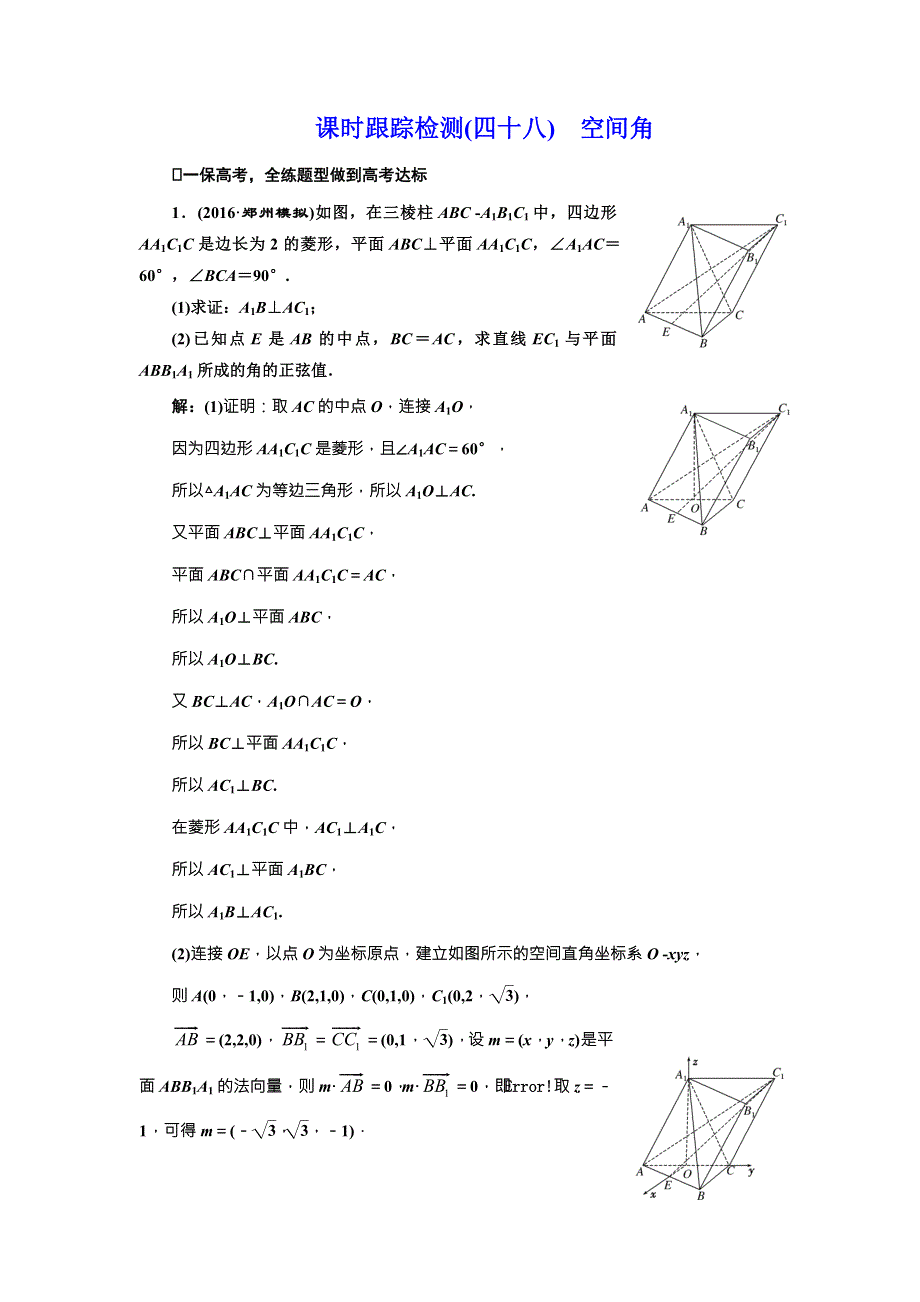 课时跟踪检测(四十八) 空间角
一保高考，全练题型做到高考达标
1．(2016·郑州模拟)如图，在三棱柱 ABC -A₁B₁C₁ 中，四边形
AA₁C₁C 是边长为 2 的菱形，平面 ABC⊥平面 AA₁C₁C，∠A₁AC＝
60°，∠BCA＝90°．
(1)求证：A₁B⊥AC₁；
(2)已知点 E 是 AB 的中点，BC＝AC，求直线 EC₁ 与平面
ABB₁A₁ 所成的角的正弦值．
A₁ C₁ B₁ A E B C
解：(1)证明：取 AC 的中点 O，连接 A₁O，
因为四边形 AA₁C₁C 是菱形，且∠A₁AC＝60°，
所以△A₁AC 为等边三角形，所以 A₁O⊥AC.
又平面 ABC⊥平面 AA₁C₁C，
平面 ABC∩平面 AA₁C₁C＝AC，
所以 A₁O⊥平面 ABC，
所以 A₁O⊥BC.
又 BC⊥AC，A₁O∩AC＝O，
所以 BC⊥平面 AA₁C₁C，
所以 AC₁⊥BC.
在菱形 AA₁C₁C 中，AC₁⊥A₁C，
所以 AC₁⊥平面 A₁BC，
所以 A₁B⊥AC₁.
A₁ C₁ B₁ A E O B C
(2)连接 OE，以点 O 为坐标原点，建立如图所示的空间直角坐标系 O -xyz，
则 A(0，－1,0)，B(2,1,0)，C(0,1,0)，C₁(0,2，√3)，
AB＝(2,2,0)，BB₁＝CC₁＝(0,1，√3)，设 m＝(x，y，z)是平
面 ABB₁A₁ 的法向量，则 m·AB＝0，m·BB₁＝0，即Error!取 z＝－
1，可得 m＝(－√3，√3，－1)．
z A₁ C₁ B₁ A O C y x E B